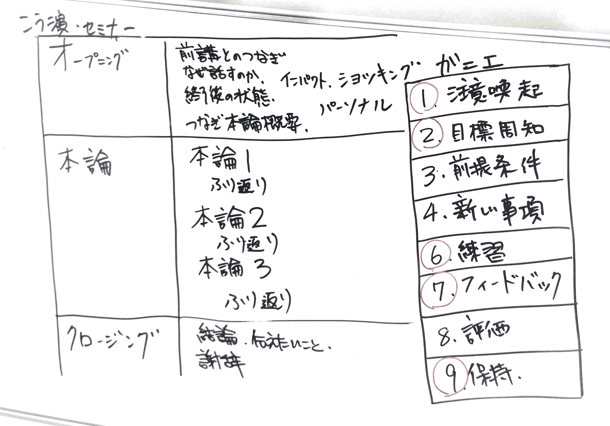 こう演・セミナー
オープニング
前講とのつなぎ
なぜ話すのか、インパクト、ショッキング
終了後の状態、パーソナル
つなぎ本論概要、
本論
本論1
ふり返り
本論2
ふり返り
本論3
ふり返り
クロージング
結論、伝えたいこと、
謝辞
ガニエ
1. 注意喚起
2. 目標周知
3. 前提条件
4. 新しい事項
6. 練習
7. フィードバック
8. 評価
9. 保持.